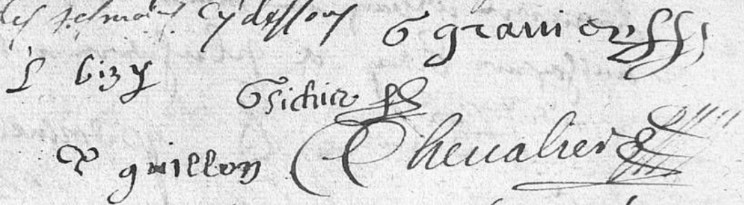 les tesmoins cydessous G granier
L bizy
G sichier
P guillon Chevalier